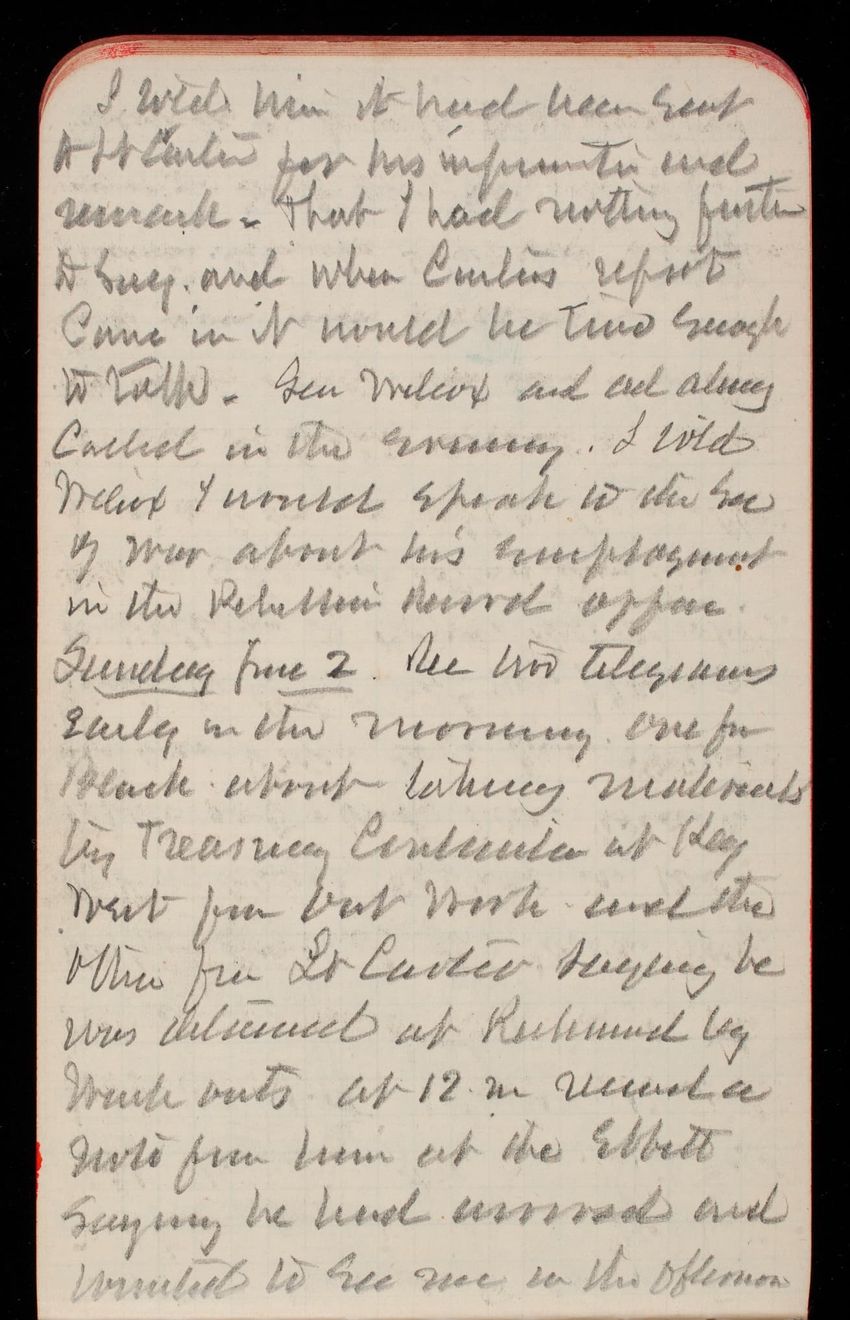 I told him it had been sent
to Lt Carter for his information and
remark - That I had nothing further
to say. and when Carters report
Came in it would be time enough
to talk - Gen Wilcox and
Called in the evening. I told
Wilcox I would speak to the Sec
of War about his employment
in the Rebellion Record office.
Sunday June 2. Rec two telegrams
early in the morning. one from
Black about taking materials
by Treasury Contractor at Key
West from Fort Work and the
other from Lt Carter saying he
was detained at Richmond by
Wash outs. at 12 m received a
note from him at the Ebbitt
saying he had arrived and
wanted to see me in the afternoon